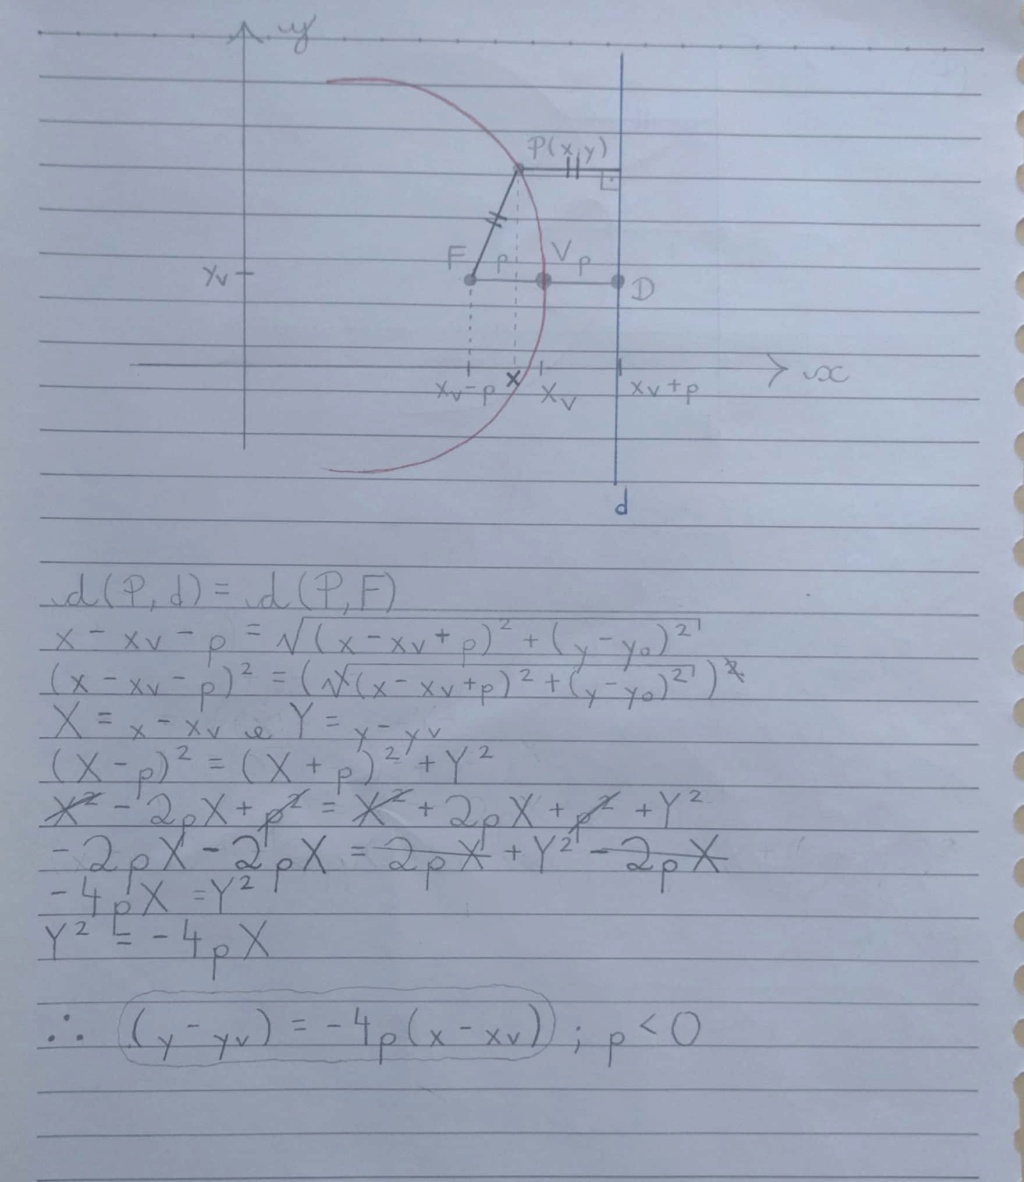 y
P(x,y)
F p V p
yv D
xv-p x xv xv+p x
d
d(P,d) = d(P,F)
x - xv - p = √(x - xv + p)² + (y - y₀)²
(x - xv - p)² = (√(x - xv + p)² + (y - y₀)²)²
X = x - xv e Y = y - yv
(X - p)² = (X + p)² + Y²
X² - 2pX + p² = X² + 2pX + p² + Y²
- 2pX - 2pX = 2pX + Y² - 2pX
- 4pX = Y²
Y² = - 4pX
∴ (y - yv) = - 4p(x - xv) ; p < 0